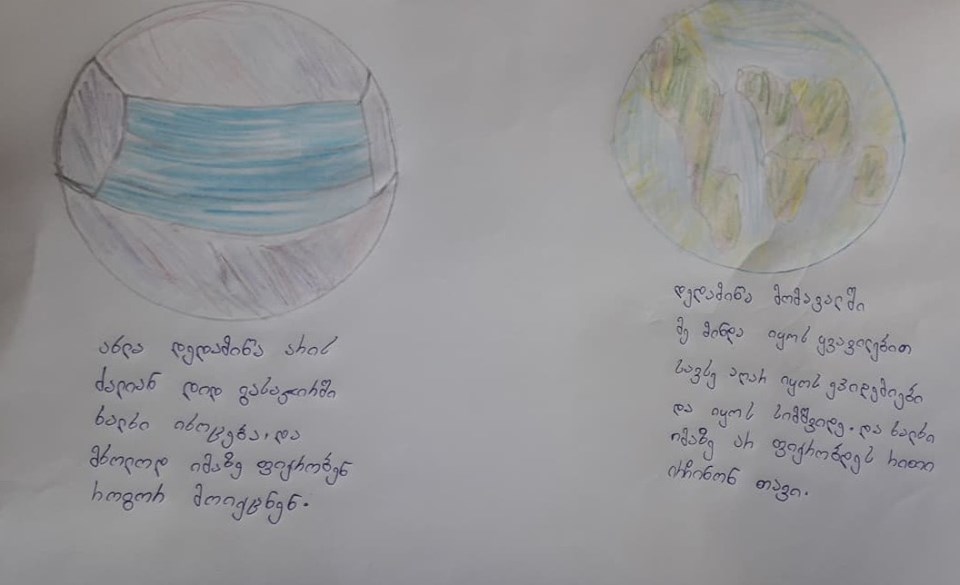 ახლა დედამიწა არის
ძალიან დიდ გასაჭირში
ხალხი იხოცება, და
მხოლოდ იმაზე ფიქრობენ
როგორ მოიქცნენ.
დედამიწა მომავალში
მე მინდა იყოს ყვავილებით
სავსე აღარ იყოს ეპიდემიები
და იყოს სიმშვიდე. და ხალხი
იმაზე არ ფიქრობდეს რითი
ირჩინონ თავი.